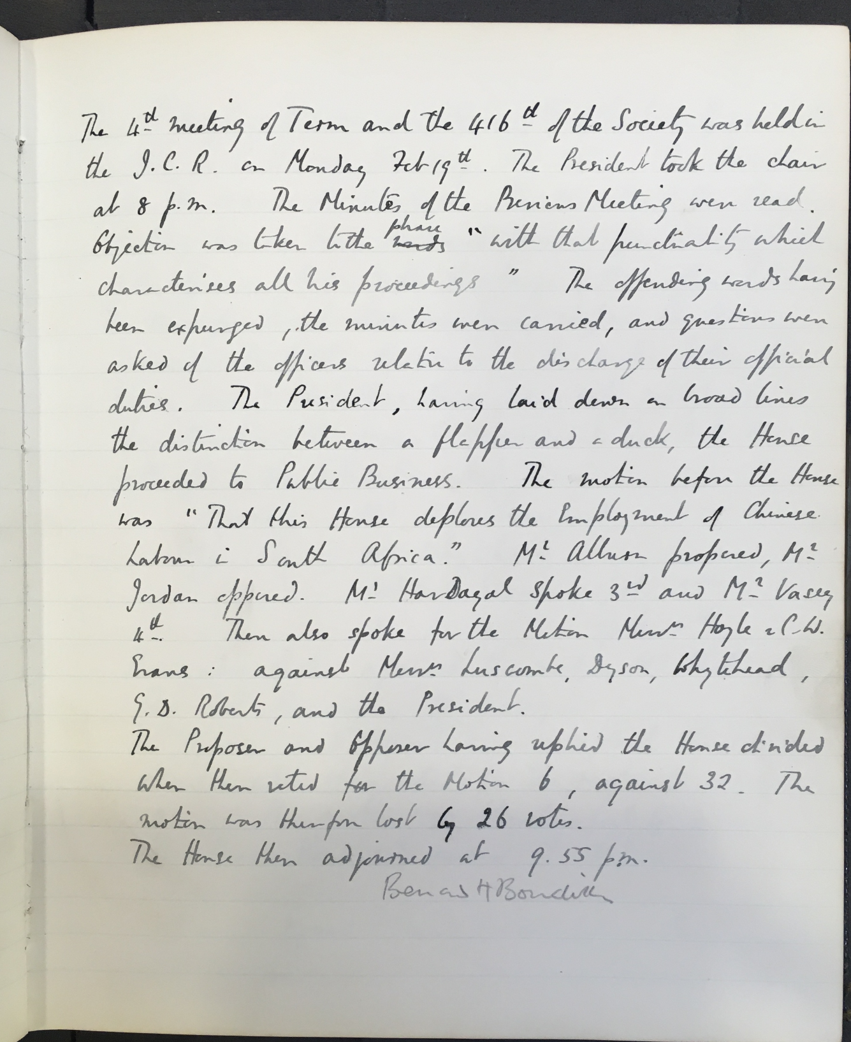 The 4th meeting of Term and the 416th of the Society was held in
the J.C.R. on Monday Feb 19th. The President took the chair
at 8 p.m. The Minutes of the Previous Meeting were read.
Objection was taken to the phrase words "with that punctuality which
characterises all his proceedings" The offending words having
been expurged, the minutes were carried, and questions were
asked of the officers relative to the discharge of their official
duties. The President, having laid down on broad lines
the distinction between a flapper and a duck, the House
proceeded to Public Business. The motion before the House
was "That this House deplores the Employment of Chinese
Labour in South Africa." Mr proposed, Mr
Jordan opposed. Mr spoke 3rd and Mr Vasey
4th. There also spoke for the Motion Messrs Hoyle & C.W.
Evans: against Messrs Luscombe, Dyson, Whytehead,
G.D. Roberts, and the President.
The Proposer and Opposer having replied the House divided
when there voted for the Motion 6, against 32. The
motion was therefore lost by 26 votes.
The House then adjourned at 9.55 p.m.